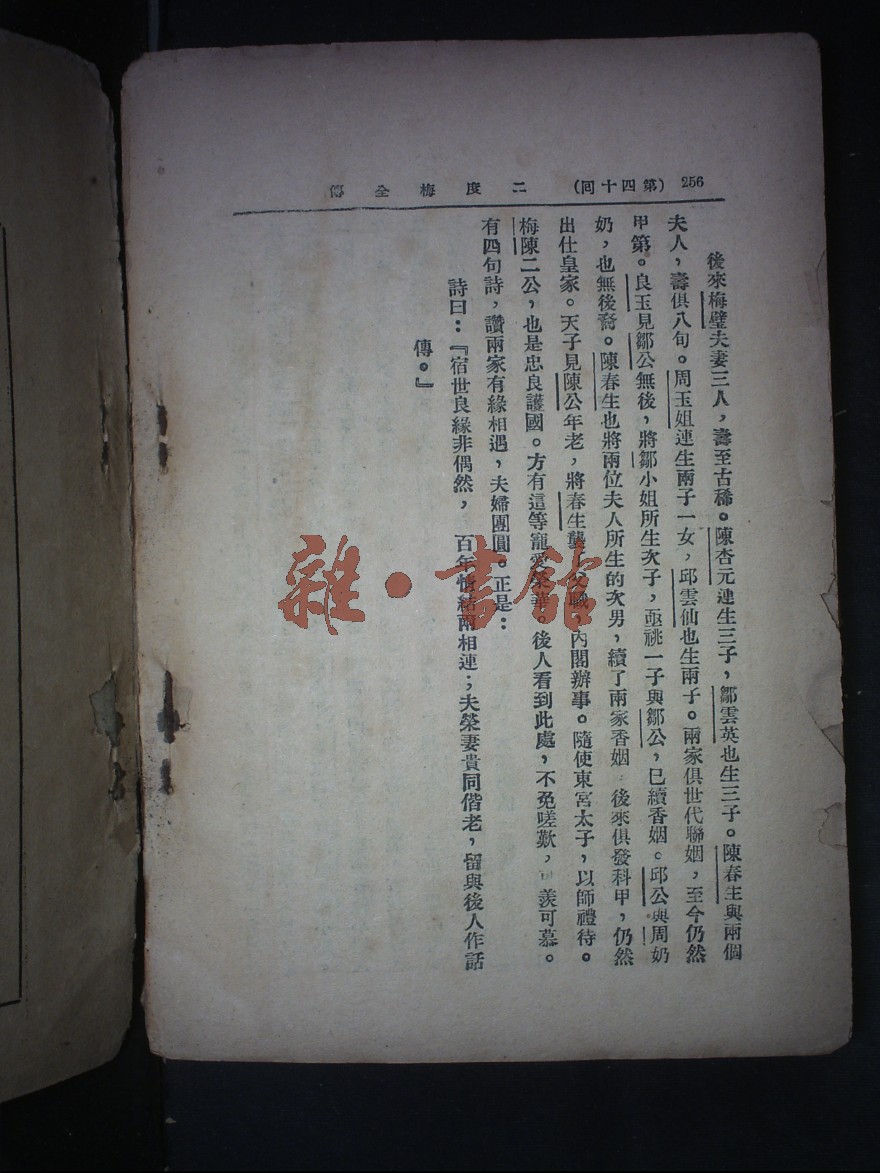 256 （第四十回） 二度梅全傳
後來梅璧夫妻三人，壽至古稀。陳杏元連生三子，鄒雲英也生三子。陳春生與兩個
夫人，壽俱八旬。周玉姐連生兩子一女，邱雲仙也生兩子。兩家俱世代聯姻，至今仍然
甲第。良玉見鄒公無後，將鄒小姐所生次子，亟祧一子與鄒公，已續香姻。邱公與周奶
奶，也無後裔。陳春生也將兩位夫人所生的次男，續了兩家香姻 後來俱發科甲，仍然
出仕皇家。天子見陳公年老，將春生襲父職，內閣辦事。隨使東宮太子，以師禮待。
梅陳二公，也是忠良護國。方有這等寵愛榮華。後人看到此處，不免嗟歎，羨可慕。
有四句詩，讚兩家有緣相遇，夫婦團圓。正是：
詩曰：『宿世良緣非偶然，百年情結兩相連；夫榮妻貴同偕老，留與後人作話
傳。』
雜·書館